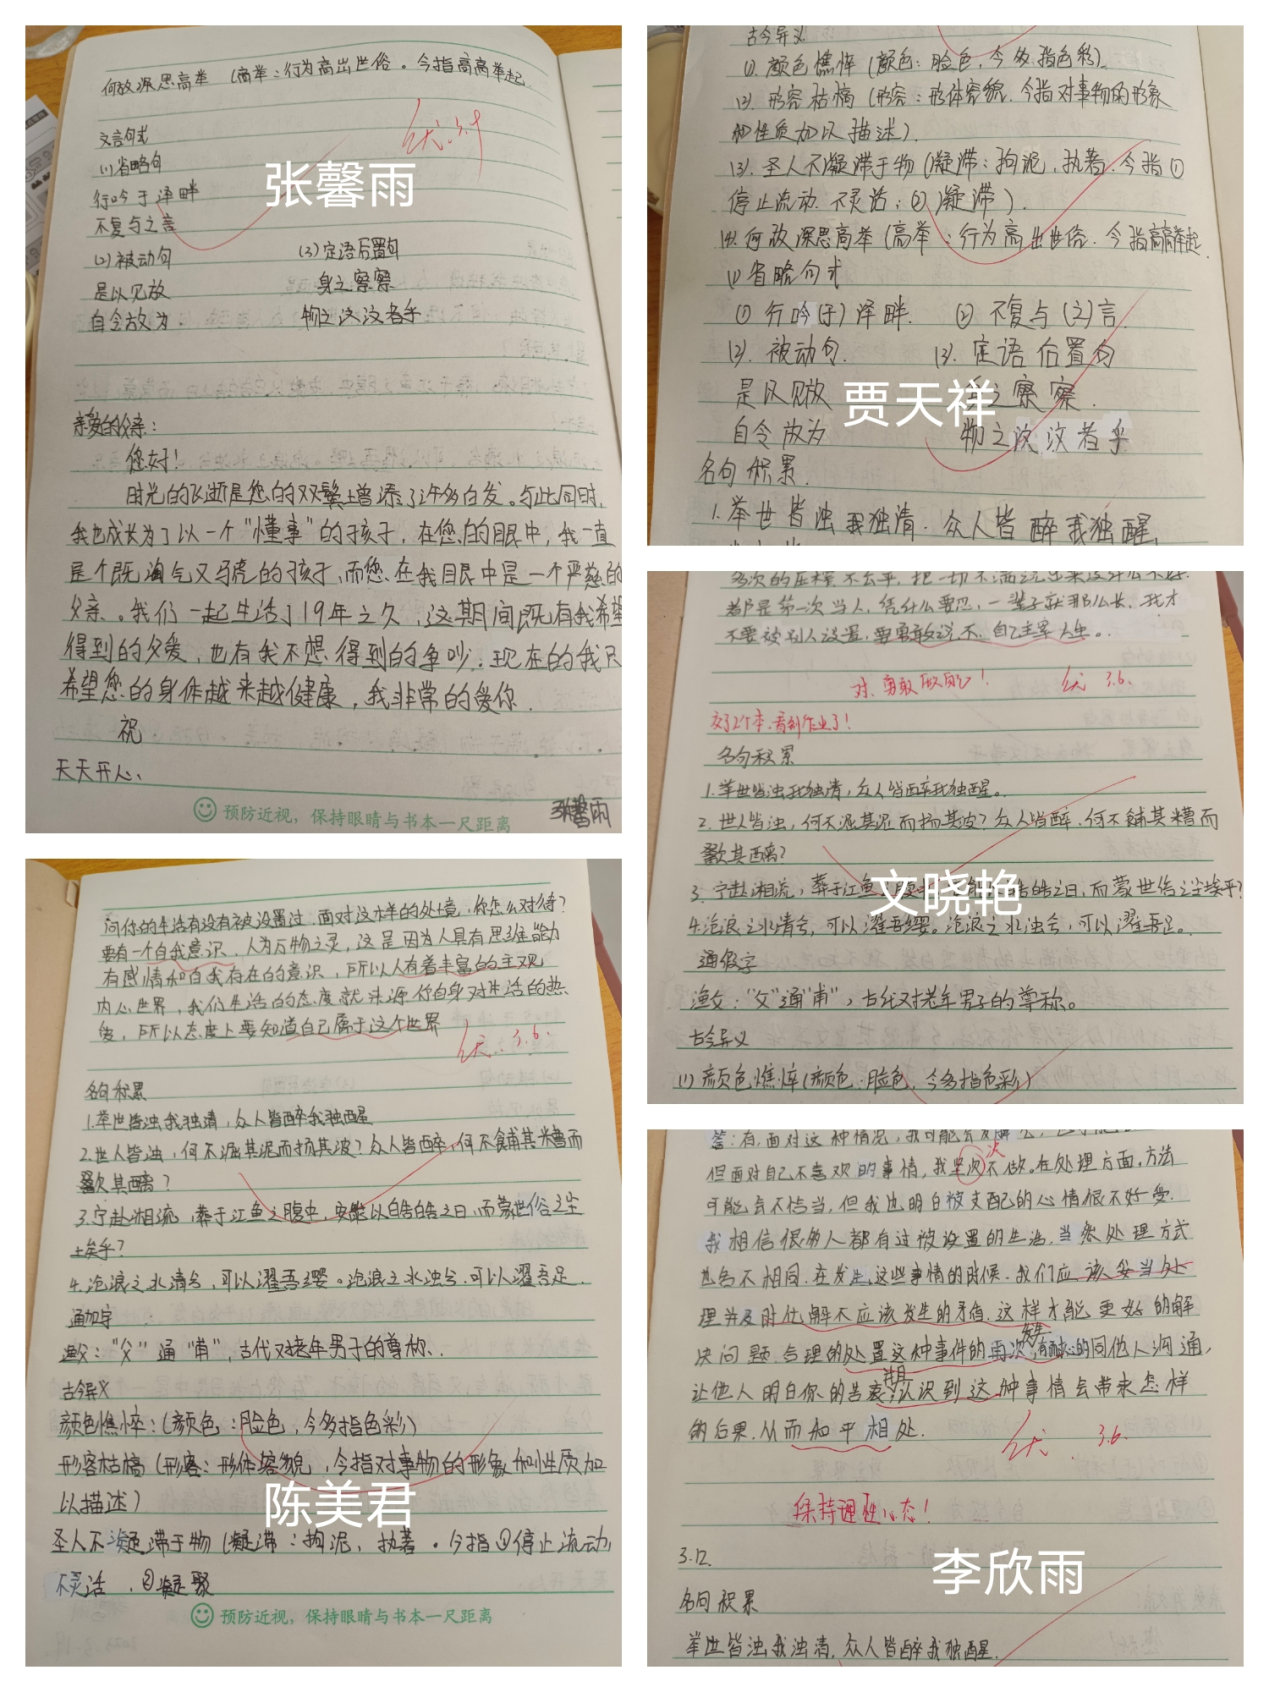 何故深思高举（高举：行为高出世俗。今指高高举起
优 3.9
文言句式
(1)省略句
张馨雨
行吟于泽畔
不复与之言
(2)被动句 (3)定语后置句
是以见放 身之察察
自令放为. 物之汶汶者乎
亲爱的父亲：
您好！
时光的飞逝是您的双鬓增添了许多白发。与此同时，
我也成长为了以一个“懂事”的孩子，在您的眼中，我一直
是个既淘气又马虎的孩子，而您在我眼中是一个严慈的
父亲。我们一起生活了19年之久，这期间既有我希望
得到的父爱，也有我不想得到的争吵；现在的我只
希望您的身体越来越健康，我非常的爱你.
祝
天天开心、
张馨雨
预防近视，保持眼睛与书本一尺距离
古今异义
(1).颜色憔悴（颜色：脸色，今多指色彩).
(2).形容枯槁（形容：形体容貌，今指对事物的形象
和性质加以描述).
(3).圣人不凝滞于物（凝滞：拘泥，执着，今指①
停止流动.不灵活；②凝滞）.
(4).何故深思高举（高举：行为高出世俗.今指高高举起.
(1)省略句式
①行吟(于)泽畔. ②不复与(之)言.
(2).被动句. (3).定语后置句
是以见放 身之察察.
贾天祥
自令放为 物之汶汶者乎
名句积累.
1.举世皆浊我独清.众人皆醉我独醒,
都是第一次当人，凭什么要忍，一辈子就那么长，我才
不要被别人设置，要勇敢说不，自己主宰人生。.
对，勇敢做自己！ 优 3.6.
交了2个本，看到作业了！
名句积累
1.举世皆浊我独清，众人皆醉我独醒。.
2.世人皆浊，何不淈其泥而扬其波？众人皆醉，何不餔其糟而
歠其醨？
3.宁赴湘流，葬于江鱼之腹中，安能以皓皓之白，而蒙世俗之尘埃乎？
文晓艳
4.沧浪之水清兮，可以濯吾缨。沧浪之水浊兮，可以濯吾足。.
通假字
渔父：“父”通“甫”，古代对老年男子的尊称。
古今异义
(1)颜色憔悴(颜色：脸色，今多指色彩)
问你的生活有没有被设置过，面对这样的处境，你怎么对待？
要有一个自我意识，人为万物之灵，这是因为人具有思维能力
有感情和自我存在的意识，所以人有着丰富的主观
内心世界，我们生活的态度就来源你自身对生活的热
爱，所以态度上要知道自己属于这个世界
优. 3.6.
名句积累
1.举世皆浊我独清，众人皆醉我独醒
2.世人皆浊，何不淈其泥而扬其波？众人皆醉，何不餔其糟而
歠其醨？
3.宁赴湘流，葬于江鱼之腹中，安能以皓皓之白，而蒙世俗之尘
土埃乎？
4.沧浪之水清兮，可以濯吾缨。沧浪之水浊兮，可以濯吾足.
通加字
渔父：“父”通“甫”，古代对老年男子的尊称、.
古今异义
颜色憔悴：(颜色：脸色，今多指色彩)
形容枯槁（形容：形体容貌，今指对事物的形象和性质加
以描述)
陈美君
圣人不凝滞于物（凝滞：拘泥，执著。今指①停止流动，
不灵活，②凝聚
预防近视，保持眼睛与书本一尺距离
答：有，面对这种情况，我可能会
但面对自己不喜欢的事情，我坚次不做。在处理方面，方法
决
可能会不恰当，但我也明白被支配的心情很不好受.
我相信很多人都有过被设置的生活，当然处理方式
也各不相同.在发生这些事情的时候，我们应该妥当处
理并及时化解不应该发生的矛盾.这样才能更好的解
决问题.合理的处置这种事件的再次发生，有耐心的同他人沟通，
让他人明白你的苦衷，并且认识到这种事情会带来怎样
的后果，从而和平相处.
优 3.6.
保持理性心态！
3.12.
李欣雨
名句积累
举世皆浊我浊清，众人皆醉我独醒.